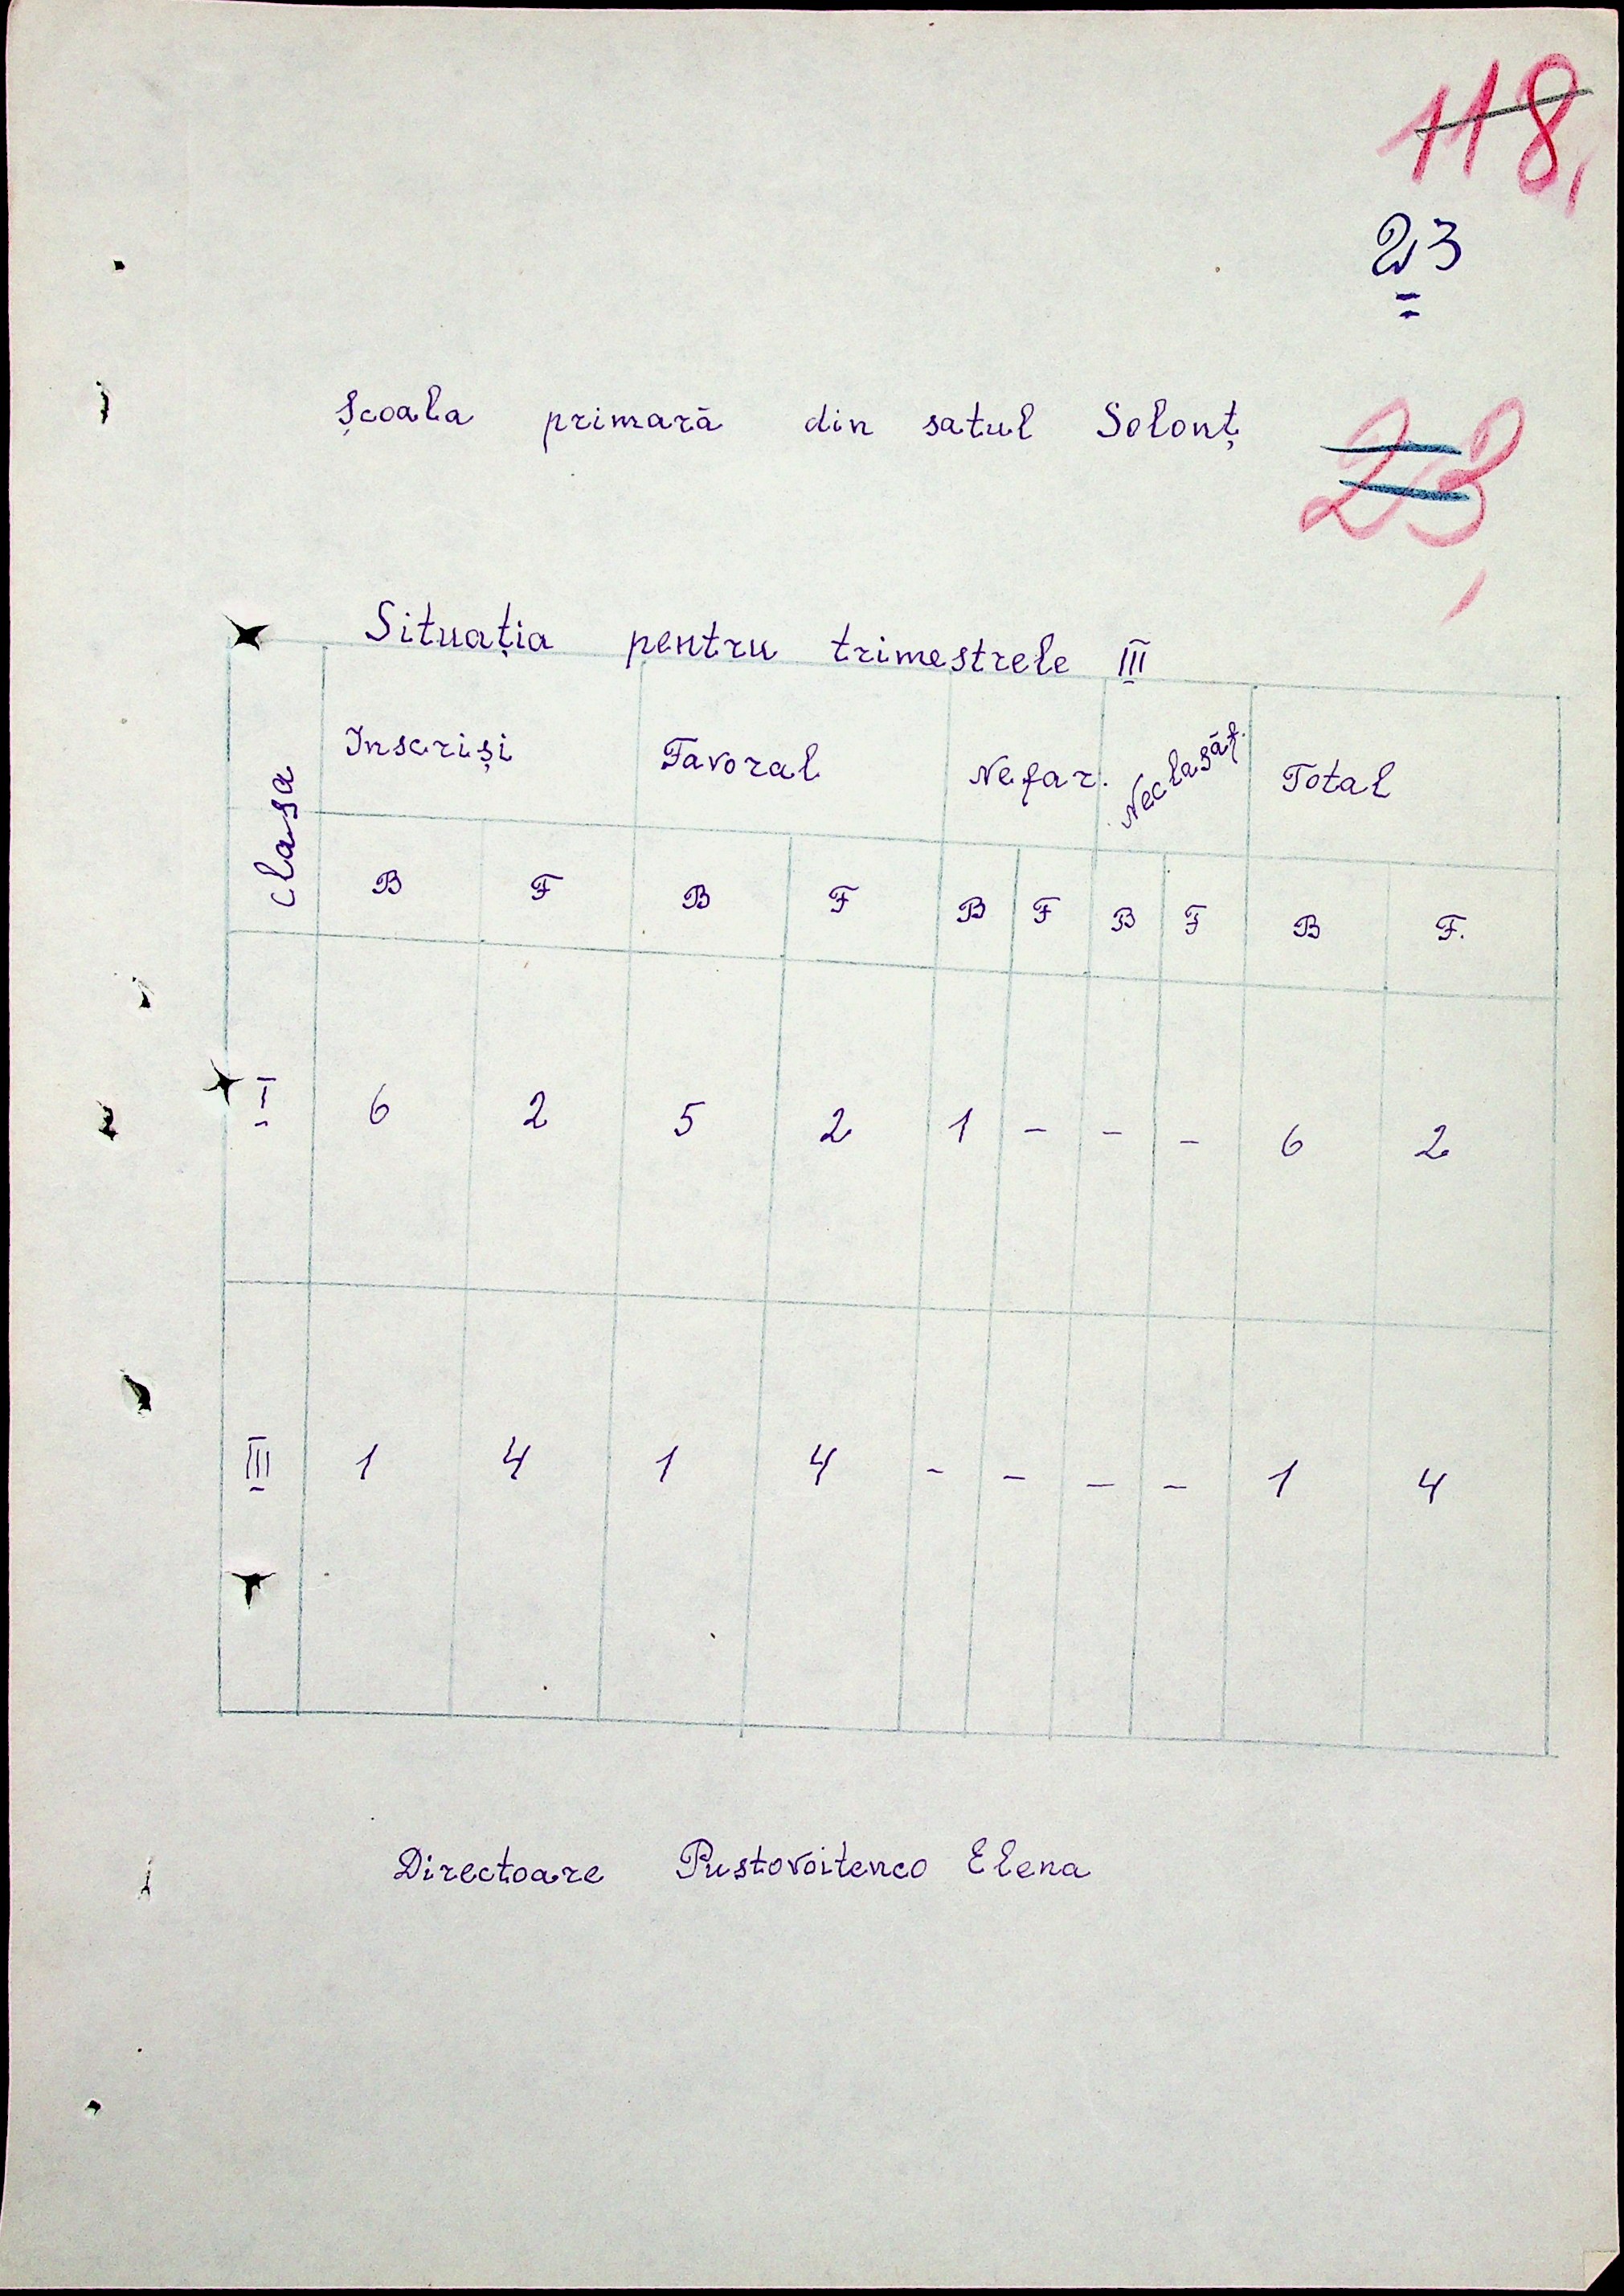 118,
23
Școala primară din satul Solonț
23,
Situația pentru trimestrele III
clasa Inscriși Favoral Nefar. Neclasăț. Total
B F B F B F B F B F.
I 6 2 5 2 1 - - - 6 2
III 1 4 1 4 - - - - 1 4
Directoare Pustovoitenco Elena